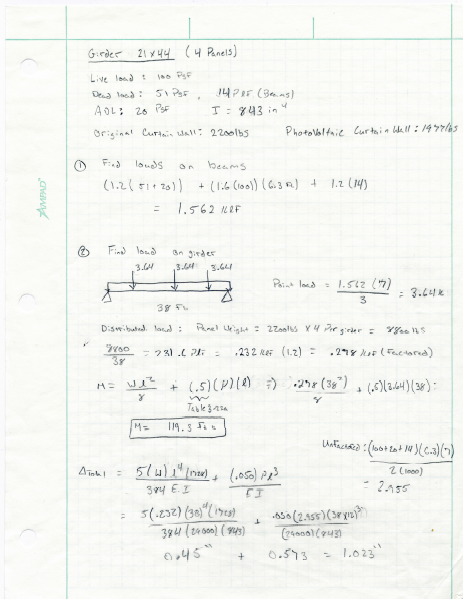 Girder 21x44 (4 Panels)
Live load : 100 PSF
Dead load : 51 PSF , 14 PLF (Beams)
ADL : 20 PSF I = 843 in⁴
Original Curtain Wall : 2200lbs Photovoltaic Curtain Wall : 1977lbs
① Find loads on beams
(1.2(51+20)) + (1.6(100))(6.3 Ft) + 1.2(14)
= 1.562 KLF
② Find load on girder
3.64 3.64 3.64
38 Ft
Point load = 1.562 (7) / 3 = 3.64 k
Distributed load : Panel Weight = 2200lbs x 4 Per girder = 8800 lbs
8800 / 38 = 231.6 PLF = .232 KLF (1.2) = .278 KLF (Factored)
M = Wl² / 8 + (.5)(P)(l) => .278(38²) / 8 + (.5)(3.64)(38) =
M = 119.3
Unfactored : (100+20+14)(6.3)(7) / 2(1000)
= 2.955
Δ Total = 5(W) l⁴ (1728) / 384 E I + (.050) P l³ / E I
= 5(.232)(38)⁴(1728) / 384(29000)(843) + .050(2.955)(38x12)³ / (29000)(843)
0.45" + 0.573 = 1.023"
AMPAD